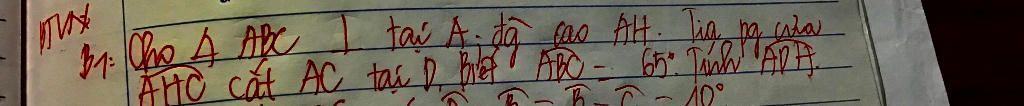 BTVN
B1: Cho Δ ABC ⊥ tại A. đg cao AH. Tia pg của
AHC cắt AC tại D. Biết ABC = 65°. Tính ADH.
B - C = 10°